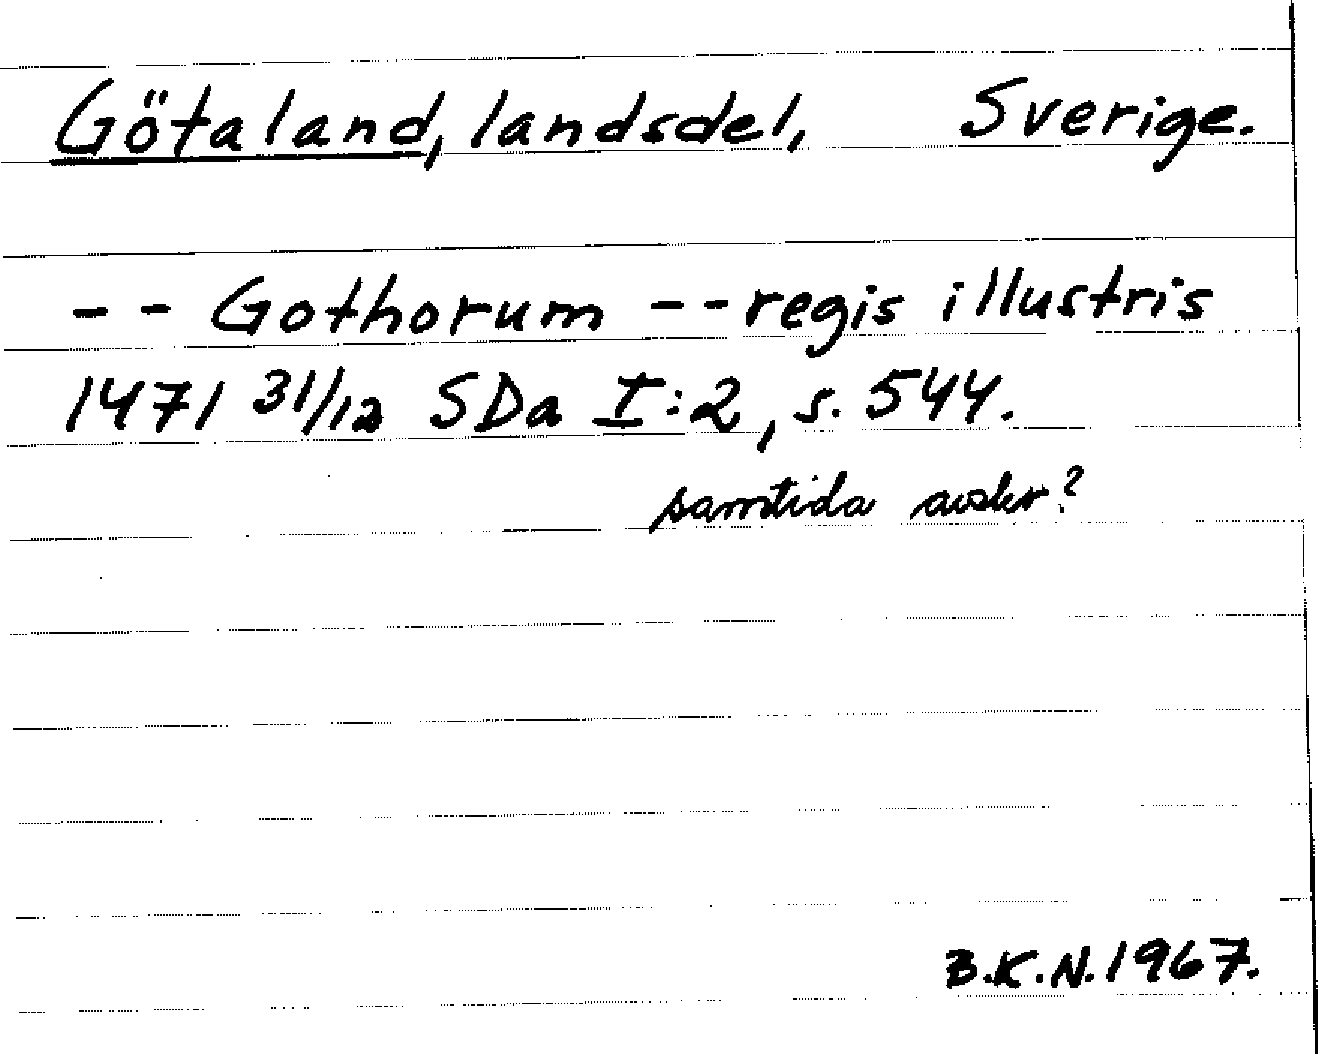 Götaland, landsdel, Sverige.
-- Gothorum -- regis illustris
1471 31/12 SDa I:2, s. 544.
samtida avskr?
B.K.N. 1967.